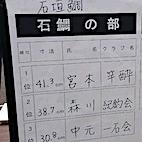 石垣鯛
石鯛の部
順位 寸法 氏名 クラブ名
1位 41.3cm 宮本
2位 38.7cm 森川 紀釣会
3位 30.8cm 中元 一石会